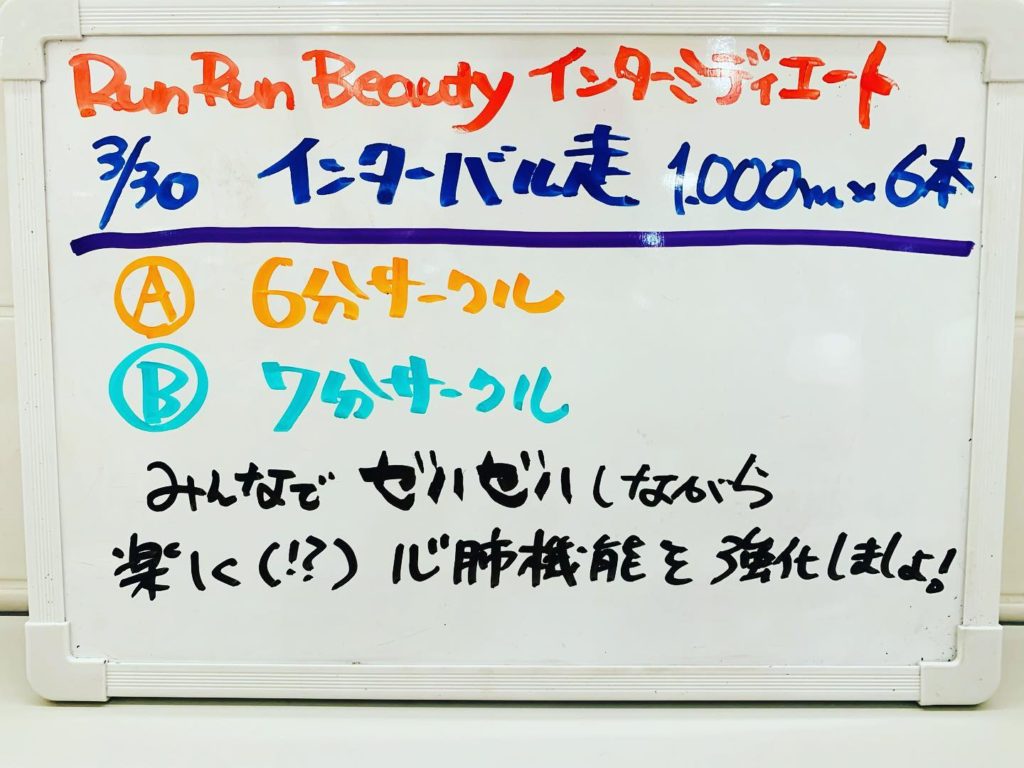 Run Run Beauty インターミディエート
3/30 インターバル走 1.000m×6本
Ⓐ 6分サークル
Ⓑ 7分サークル
みんなで ゼハゼハしながら
楽しく(!?) 心肺機能を強化しましょ!